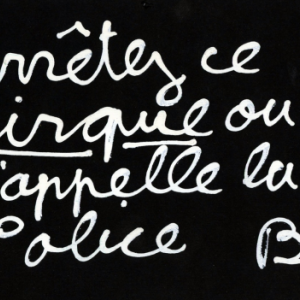 rrêtez ce
irque ou
'appelle la
Police B